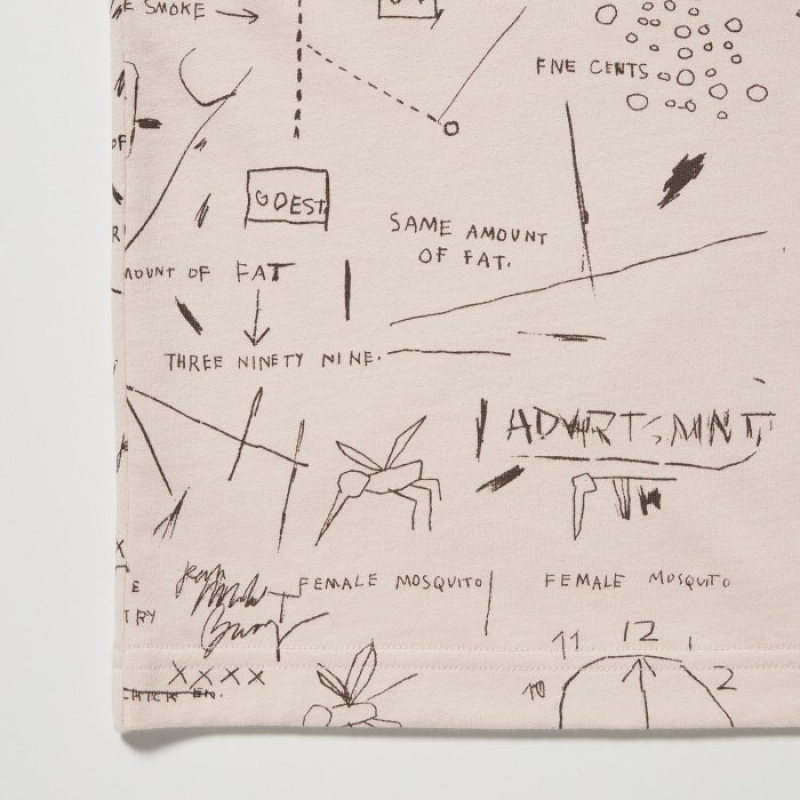 E SMOKE
FIVE CENTS
OF
GDEST
SAME AMOUNT
OF FAT.
R
MOUNT OF FAT
THREE NINETY NINE.
ADVRTSMNT
FEMALE MOSQUITO
FEMALE MOSQUITO
X
E
TRY
11 12 1
XXXX
10 2